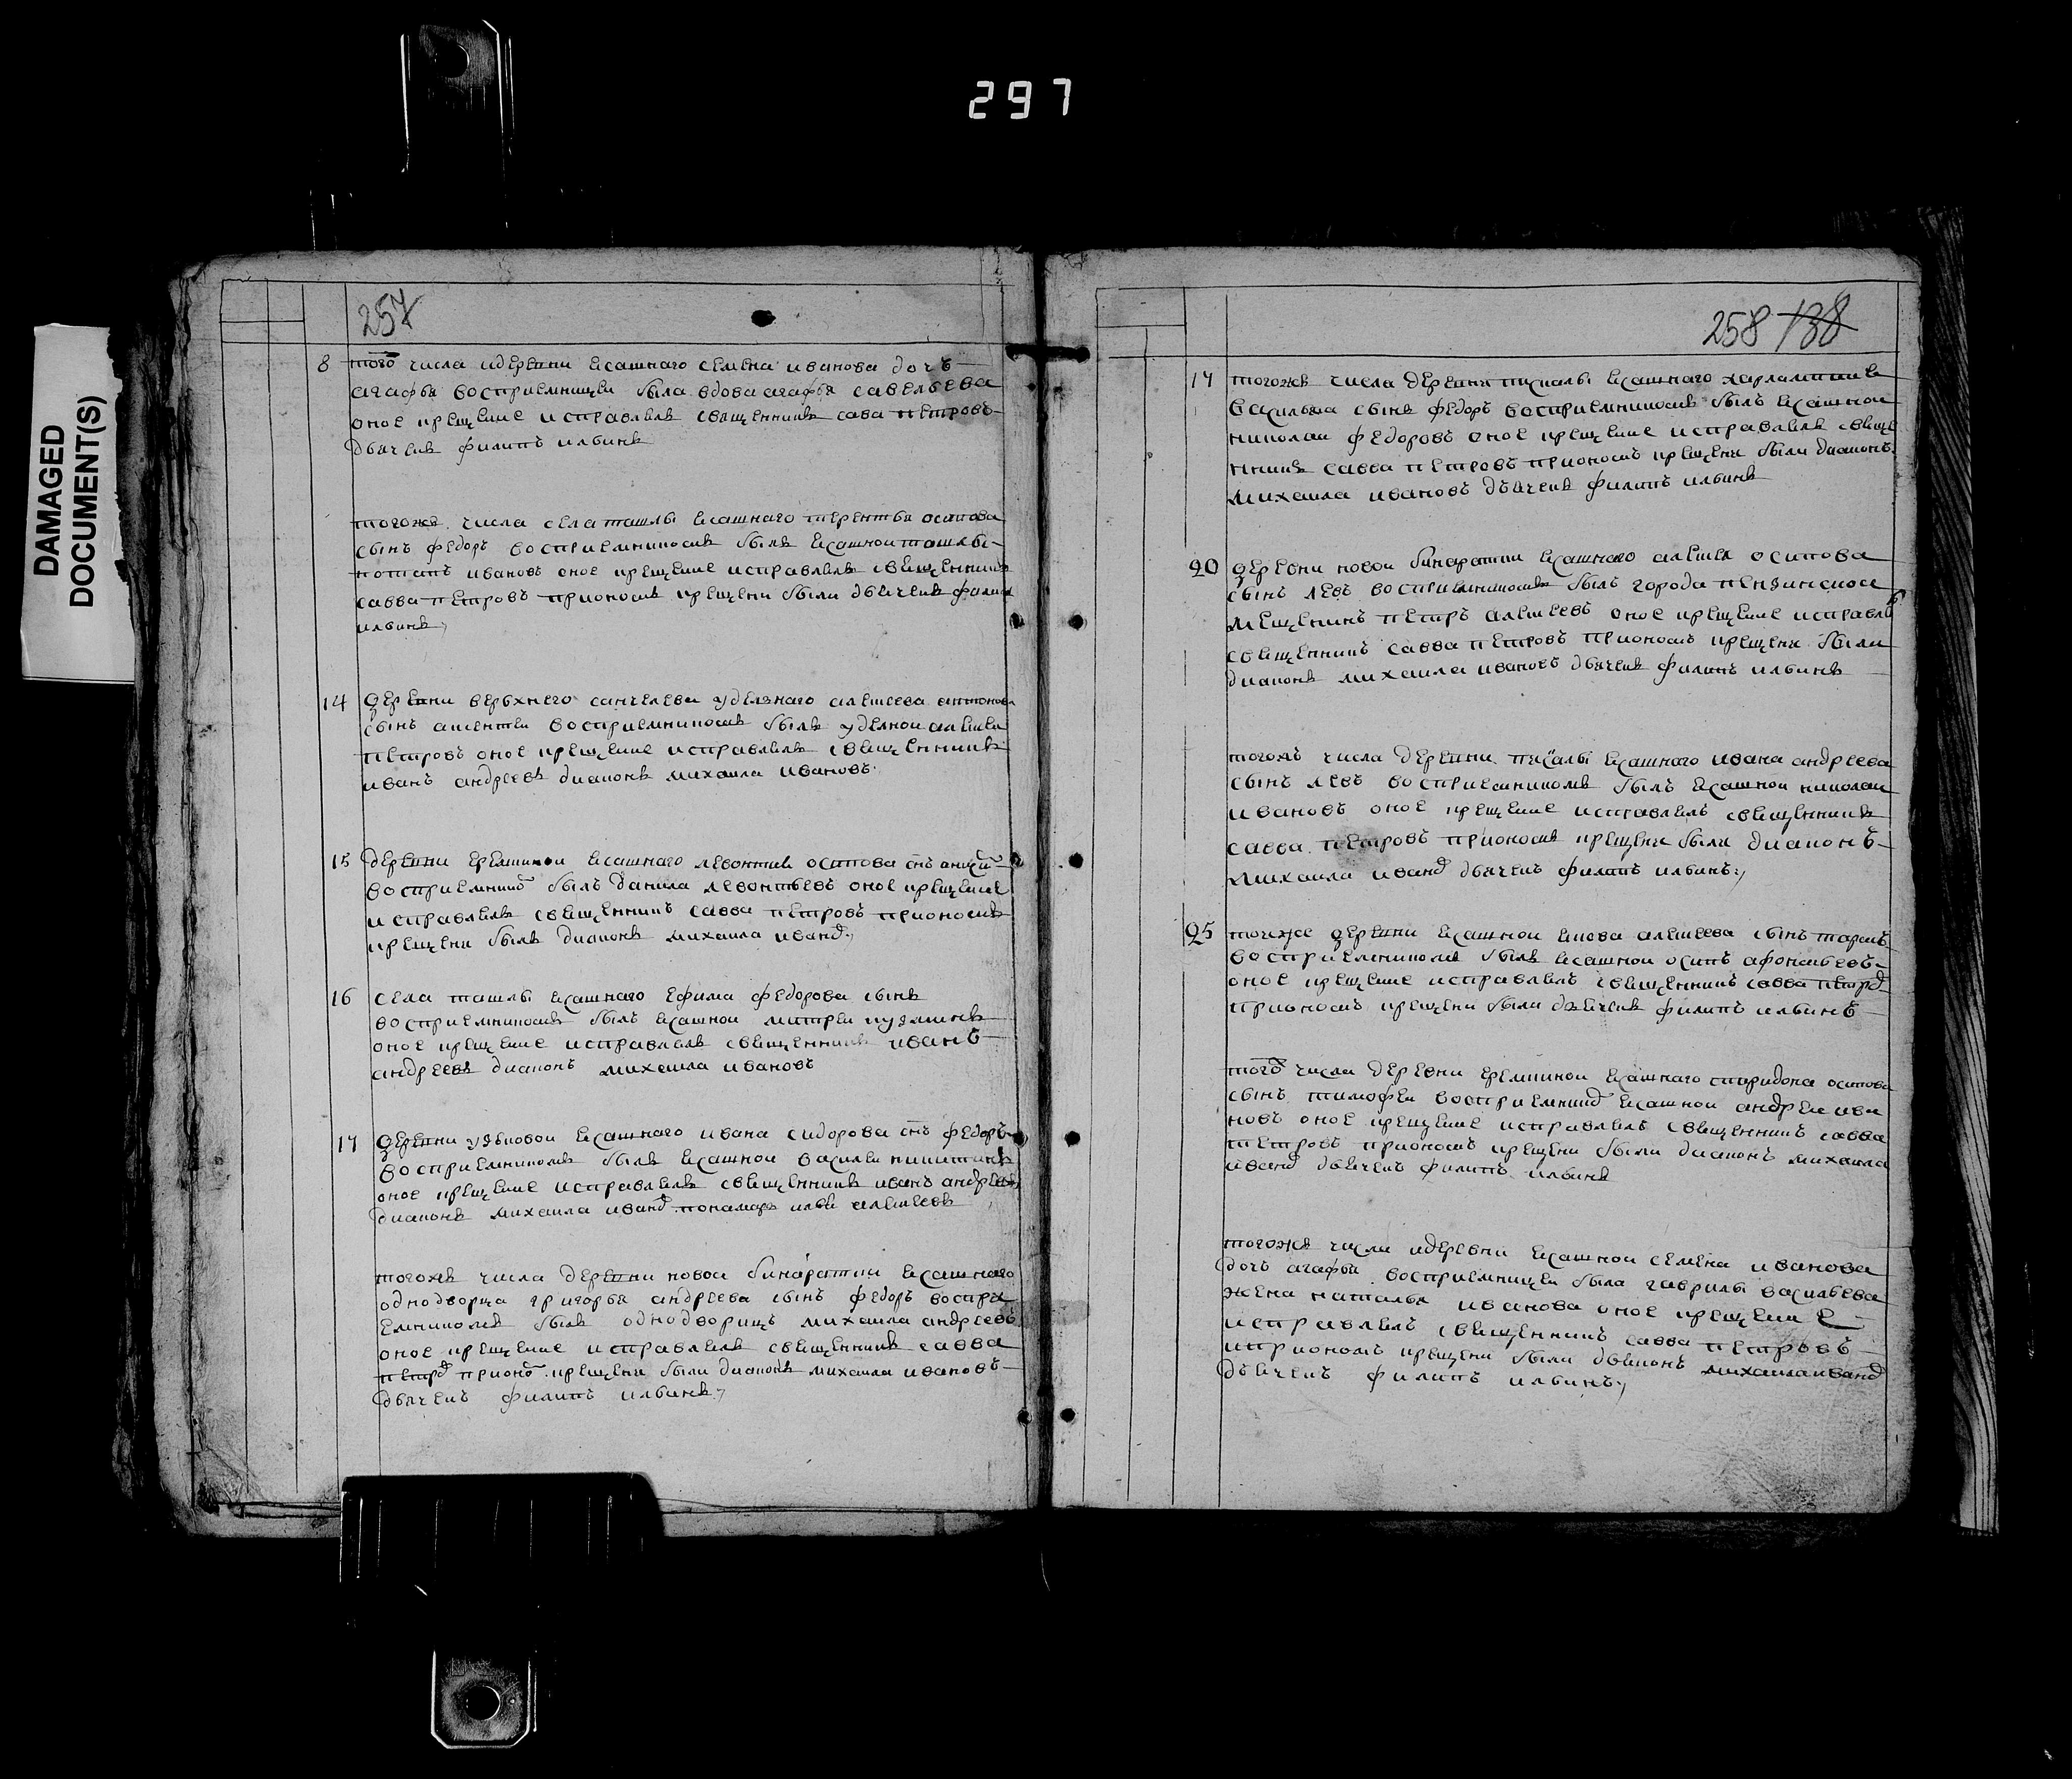 297
DAMAGED
DOCUMENT(S)
257
8 того числа идеревни ясашнаго семена иванова дочь
агафья восприемницеи была вдова агафья савельева
оное крещение исправлялъ священникъ сава петровъ
дьячекъ филипъ ильинъ
тогожъ числа села ташлы ясашнаго терентья осипова
сынъ федоръ восприемникомъ былъ ясашнои ташлы
потапъ ивановъ оное крещение исправлялъ священникъ
савва петровъ приономъ крещени были дьячекъ филип
ильинъ
14 деревни верьхнего санчелеева удельнаго алексеева антонова
сынъ аксентеи восприемникомъ былъ уделнои алексеи
петровъ оное крещение исправлялъ священникъ
иванъ андреевъ диаконъ михаила ивановъ
15 деревни еремкинои ясашнаго левонтия осипова снъ
восприемнико былъ данила левонтьевъ оное крещение
исправлялъ священникъ савва петровъ приономъ
крещени былъ диаконъ михаила ивано
16 села ташлы ясашнаго ефима федорова сынъ
восприемникомъ былъ ясашнои митреи кузминъ
оное крещение исправлялъ священникъ иванъ
андреевъ диаконъ михаила ивановъ
17 деревни узюковои ясашнаго ивана сидорова снъ федоръ
восприемникомъ былъ ясашнои василеи никитинъ
оное крещение исправлялъ священникъ иванъ андреевъ
диаконъ михаила ивано понамарь илья алексеевъ
тогожъ числа деревни новои бинаратки ясашнаго
однодворца григорья андреева сынъ федоръ воспри
емникомъ былъ однодворицъ михаила андреевъ
оное крещение исправлялъ священникъ савва
петро прионо крещени были диаконъ михаила ивановъ
дьячекъ филипъ ильинъ
258 138
17 тогожъ числа деревни пискалы ясашнаго харлампия
васильева сынъ федоръ восприемникомъ былъ ясашнои
николаи федоровъ оное крещение исправлялъ свяще
нникъ савва петровъ приономъ крещени были диаконъ
михаила ивановъ дьячекъ филипъ ильинъ
20 деревни новои бинаратки ясашнаго алексея осипова
сынъ левъ восприемникомъ былъ города пензинскои
мещенинъ петръ алексеевъ оное крещение исправлялъ
священникъ савва петровъ приономъ крещени были
диаконъ михаила ивановъ дьячекъ филипъ ильинъ
тогожъ числа деревни пискалы ясашнаго ивана андреева
сынъ левъ восприемникомъ былъ ясашнои николаи
ивановъ оное крещение исправлялъ священникъ
савва петровъ приономъ крещени были диаконъ
михаила ивано дьячекъ филипъ ильинъ
25 тоижже деревни ясашнои якова алексеева сынъ тарасъ
восприемникомъ былъ ясашнои осипъ афонасьевъ
оное крещение исправлялъ священникъ савва петро
приономъ крещени были дьячекъ филипъ ильинъ
того числа деревни еремкинои ясашнаго спиридона осипова
сынъ тимофеи восприемнико ясашнои андреи ива
новъ оное крещение исправлялъ священникъ савва
петровъ приономъ крещени были диаконъ михаила
ивано дьячекъ филипъ ильинъ
тогожъ числа идеревни ясашнои семена иванова
дочь агафья восприемницеи была гаврилы васильева
жена наталья иванова оное крещение
исправлялъ священникъ савва петровъ
иприономъ крещени были дьяконъ михаила ивано
дьячекъ филипъ ильинъ